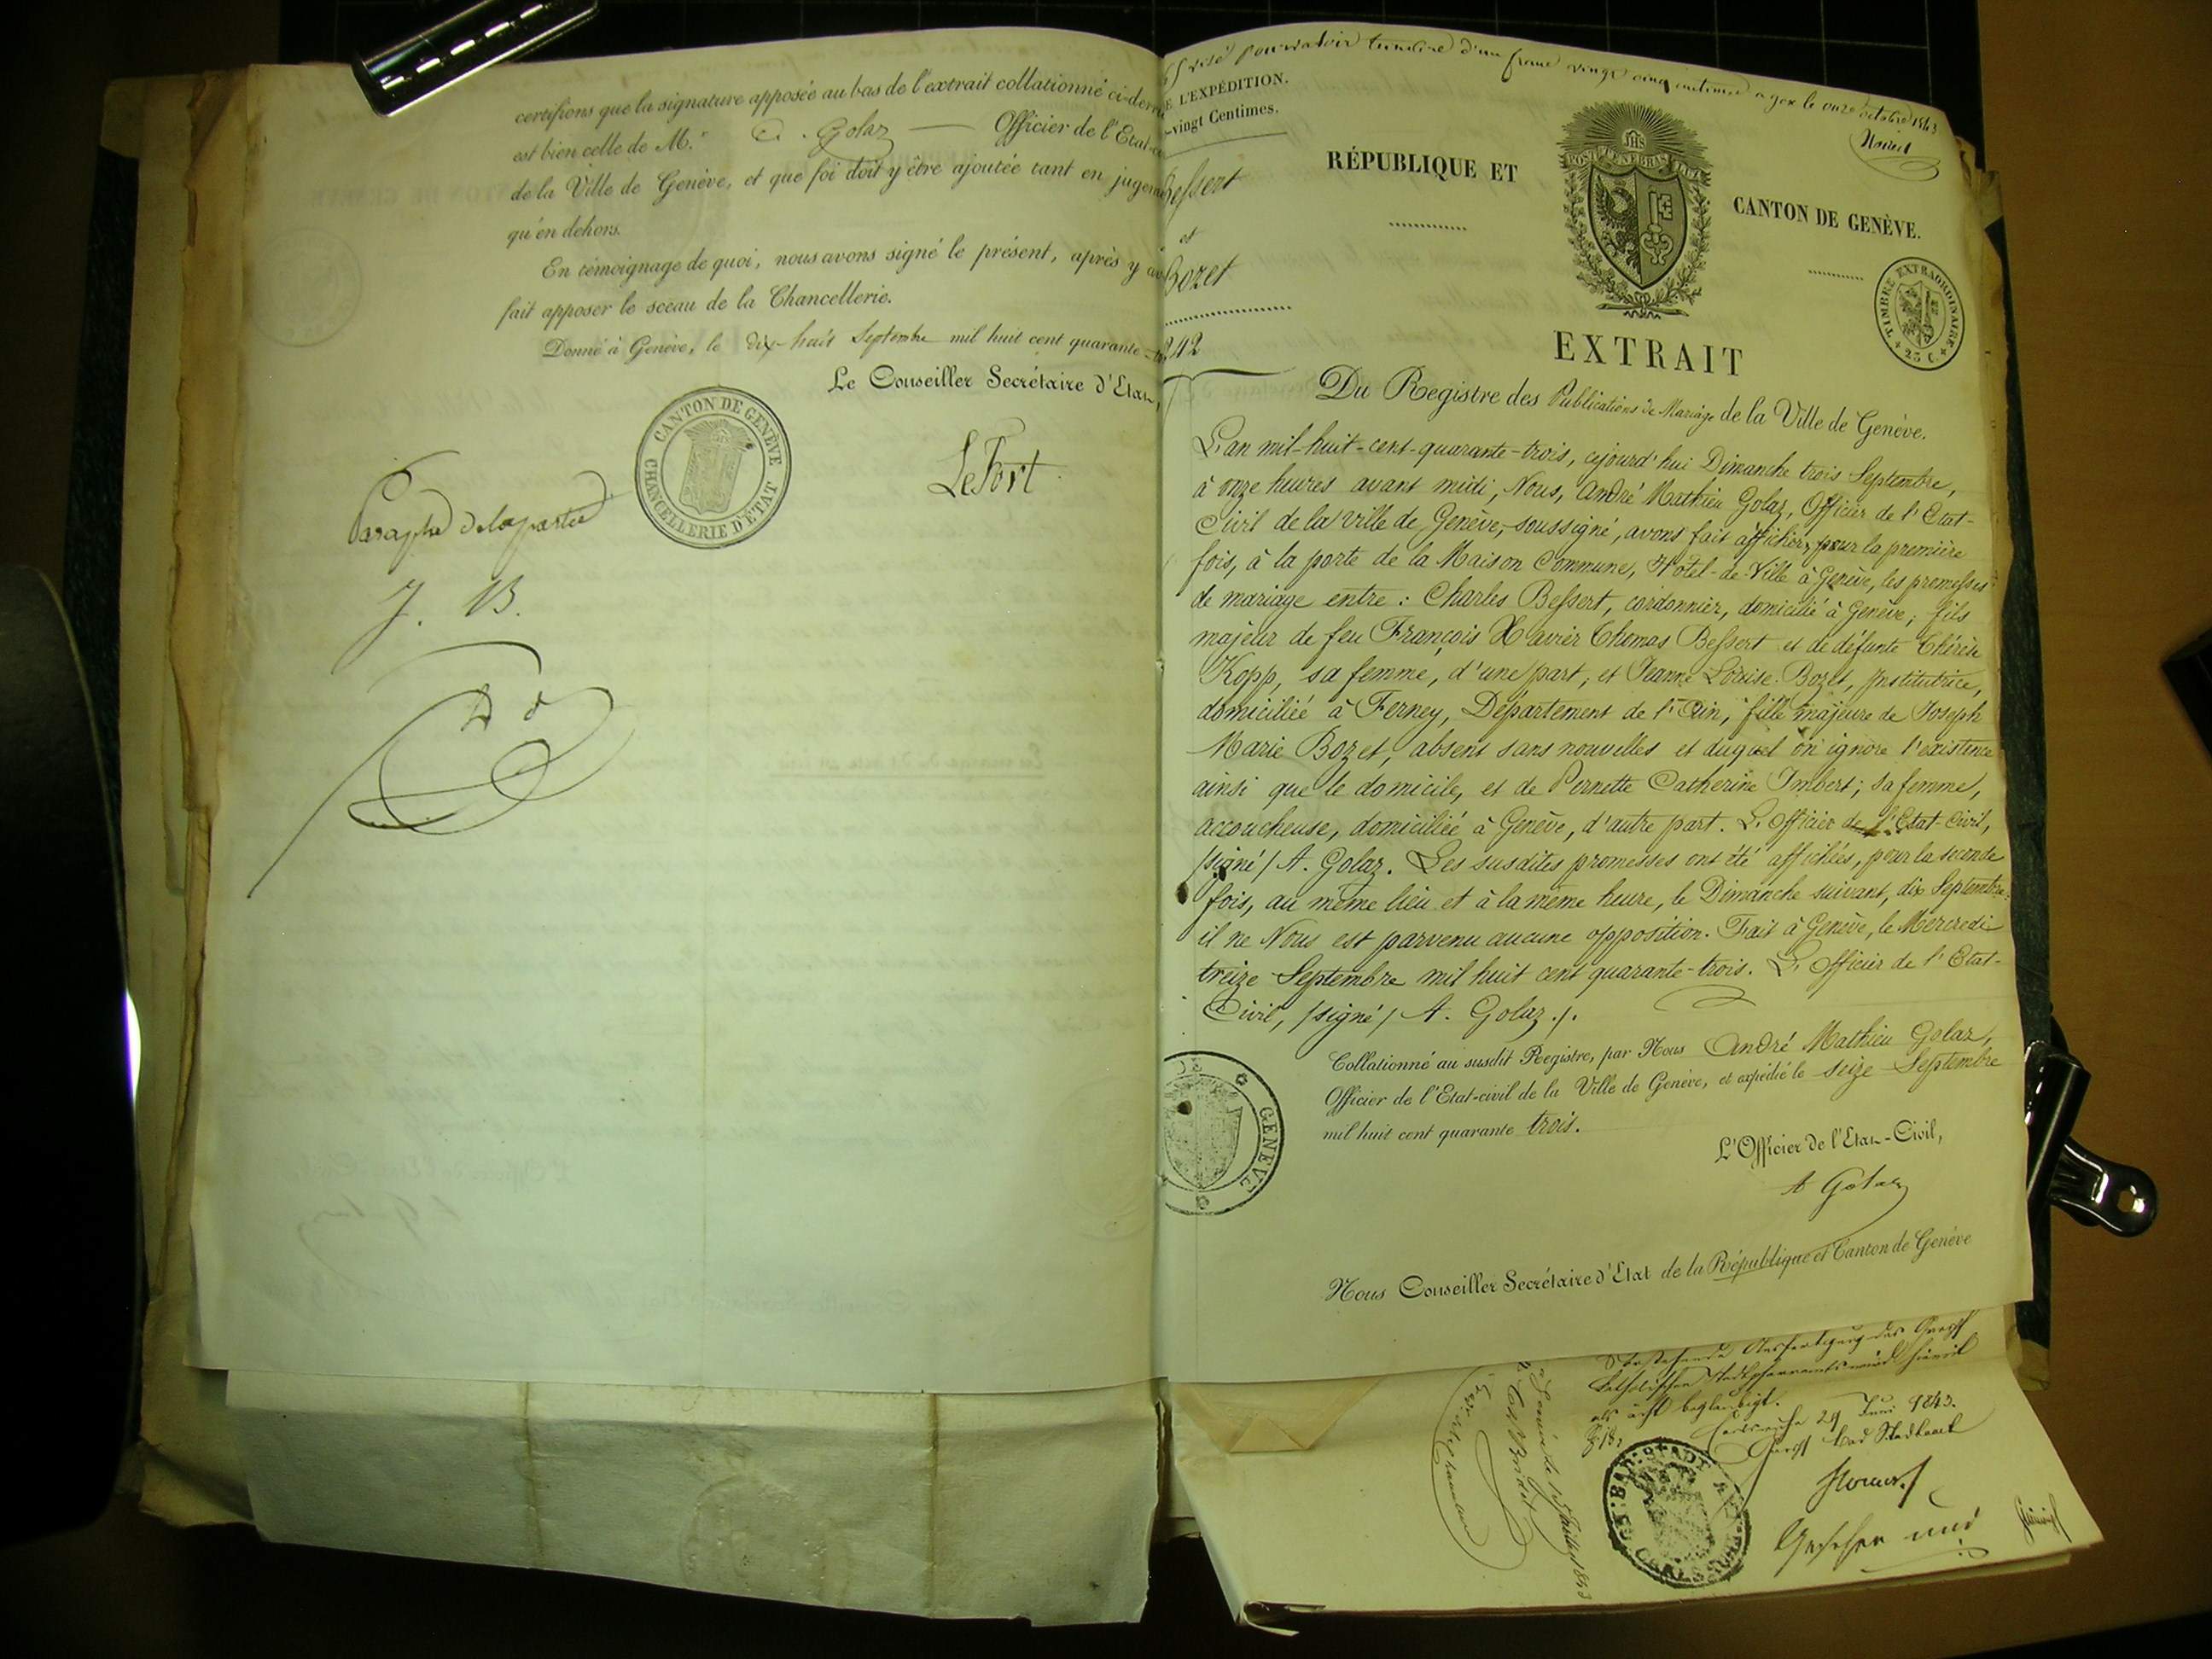 certifions que la signature apposée au bas de l'extrait collationné ci-derr
est bien celle de M.r A. Golaz — Officier de l'Etat-c
de la Ville de Genève, et que foi doit y être ajoutée tant en jugeme
qu'en dehors.
En témoignage de quoi, nous avons signé le présent, après y av
fait apposer le sceau de la Chancellerie.
Donné à Genève, le dix-huit Septembre mil huit cent quarante-tr
Le Conseiller Secrétaire d'Etat,
CANTON DE GENÈVE
CHANCELLERIE D'ÉTAT
LeFort
Paraphe de la partie
J. B.
visé pour valoir timbre d'un franc vingt cinq centimes a gex le onze octobre 1843
E L'EXPÉDITION.
-vingt Centimes.
Bessert
et
Bozet
242
RÉPUBLIQUE ET
JHS
POST TENEBRAS LUX
CANTON DE GENÈVE.
TIMBRE EXTRAORDINAIRE
25 C.
EXTRAIT
Du Registre des Publications de Mariage de la Ville de Genève.
L'an mil-huit-cent-quarante-trois, cejourd'hui Dimanche trois Septembre,
à onze heures avant midi, Nous, André Mathieu Golaz, Officier de l'Etat-
Civil de la Ville de Genève, soussigné, avons fait afficher, pour la première
fois, à la porte de la Maison Commune, Hôtel-de-Ville à Genève, les promesses
de mariage entre : Charles Bessert, cordonnier, domicilié à Genève, fils
majeur de feu François Xavier Thomas Bessert et de défunte Thérèse
Kopp, sa femme, d'une part, et Jeanne Louise Bozet, Institutrice,
domiciliée à Ferney, Département de l'Ain, fille majeure de Joseph
Marie Bozet, absent sans nouvelles et duquel on ignore l'existence
ainsi que le domicile, et de Pernette Catherine Imbert, sa femme,
accoucheuse, domiciliée à Genève, d'autre part. L'Officier de l'Etat-Civil,
/signé/ A. Golaz. Les susdites promesses ont été affichées, pour la seconde
fois, au même lieu et à la même heure, le Dimanche suivant, dix Septembre:
il ne Nous est parvenu aucune opposition. Fait à Genève, le Mercredi
treize Septembre mil huit cent quarante-trois. L'Officier de l'Etat-
Civil, /signé/ A. Golaz./.
Collationné au susdit Registre, par Nous André Mathieu Golaz,
Officier de l'Etat-civil de la Ville de Genève, et expédié le seize Septembre
mil huit cent quarante trois.
DE GENEVE
L'Officier de l'Etat-Civil,
A Golaz
Nous Conseiller Secrétaire d'Etat de la République et Canton de Genève
Vorstehende Ausfertigung des Großh
katholischen Stadtpfarramts wird hiermit
als ächt beglaubigt.
Carlsruhe 29 Juni 1843.
Großh bad Stadtamt
Gesehen und